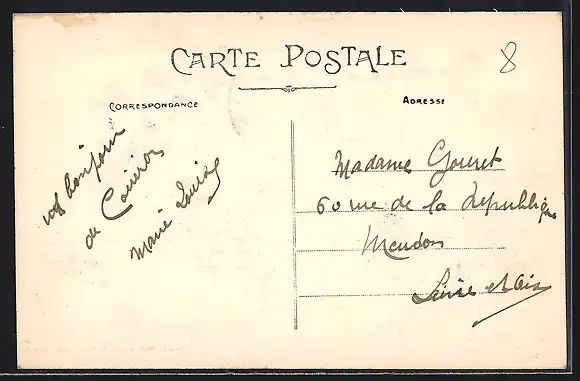 CARTE POSTALE
8
CORRESPONDANCE
ADRESSE
bonjour
de
Marie Louise
Madame Gouret
60 rue de la République
Meudon
Seine et Oise